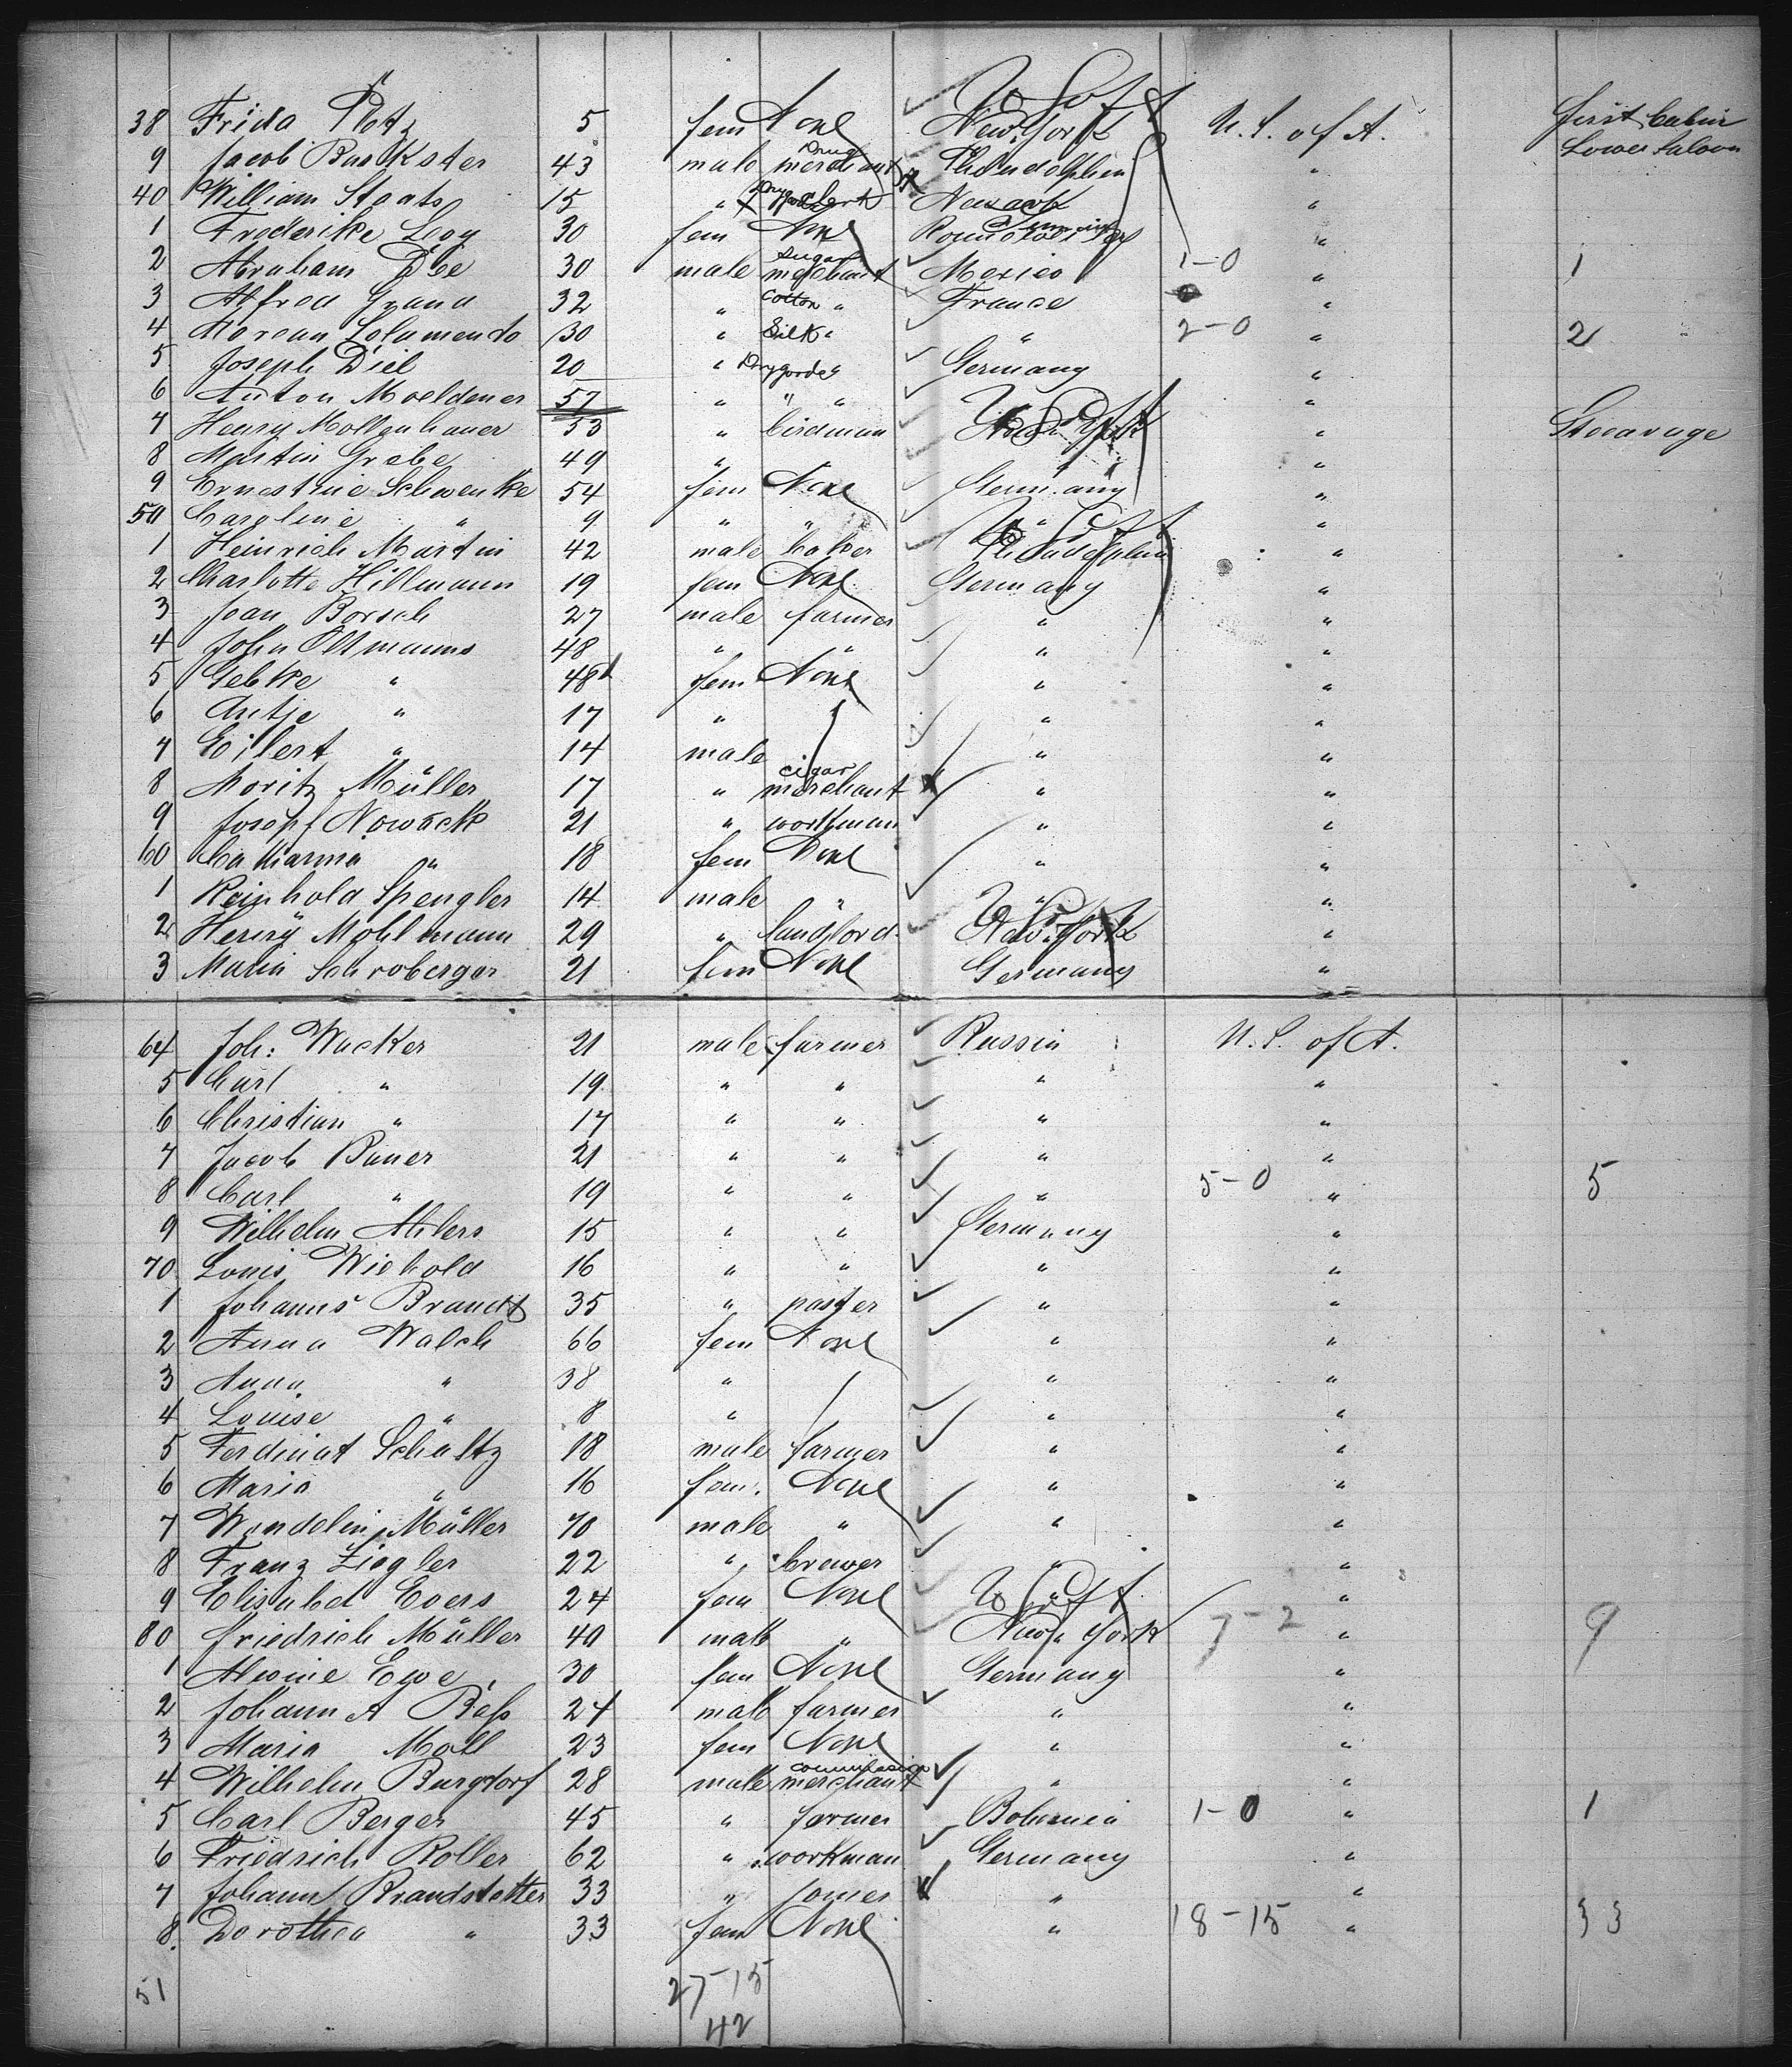 38 Frida Plotz 5 fem None U S of A New York U. S. of A. first Cabin
9 Jacob 43 male Drug merchant Philadelphia " Lower Saloon
40 William Staats 15 " Drygood clerk Newark "
1 Frederike Levy 30 fem None "
2 Abraham Dee 30 male Sugar merchant Mexico 1-0 " 1
3 Alfred Grand 32 " Cotton " France "
4 30 " Silk " " 2-0 " 2
5 Joseph Diel 20 " Drygoods " Germany "
6 Anton Moeldener 57 " " " " "
7 Henry Mollenhauer 53 " birdman U S of A New York " Steerage
8 Martin Grebe 49 " " " "
9 Ernestine Schwenke 54 fem None Germany "
50 Caroline " 9 " " " "
1 Heinrich Martin 42 male baker U S of A Philadelphia "
2 Charlotte Hillmann 19 fem None Germany "
3 Jean Borsch 27 male farmer " "
4 John Oltmanns 48 " " " "
5 Gebke " 48 fem None " "
6 Antje " 17 " " "
7 Eilert " 14 male " "
8 Moritz Müller 17 " cigar merchant " "
9 Josepf Nowack 21 " workman " "
60 Catharina " 18 fem None " "
1 Reinhold Spengler 14 male " " "
2 Henry Mohlmann 29 " landlord U S of A New York "
3 Maria Schroberger 21 fem None Germany "
64 Joh: Wacker 21 male farmer Russia U. S. of A.
5 Carl " 19 " " " "
6 Christian " 17 " " " "
7 Jacob Bauer 21 " " " "
8 Carl " 19 " " " 5-0 " 5
9 Wilhelm Ahlers 15 " " Germany "
70 Louis Wiebold 16 " " " "
1 Johanns Brandt 35 " paster " "
2 Anna Walch 66 fem None " "
3 Anna " 38 " " "
4 Louise " 8 " " "
5 Ferdinat Schultz 18 male farmer " "
6 Maria " 16 fem. None " "
7 Wendelin Müller 70 male " " "
8 Franz Ziegler 22 " brewer " "
9 Elisabet Evers 24 fem None U S of A "
80 Friedrich Müller 40 male " New York 7-2 " 9
1 Alwine Ewe 30 fem None Germany "
2 Johann A 24 male farmer " "
3 Maria Moll 23 fem None " "
4 Wilhelm Burgdorf 28 male commission merchant " "
5 Carl Berger 45 " farmer Bohemia 1-0 " 1
6 Friedrich Roller 62 " workman Germany "
7 Johann Brandstetter 33 " " "
8. Dorothea " 33 fem None " 18-15 " 33
51 27-15
42